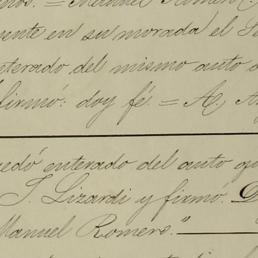 nos. = Manuel Romero
mente en su morada el
enterado del mismo auto
firmó: doy fé = A.
quedó enterado del auto que
J. Lizardi y firmó. D
Manuel Romero."